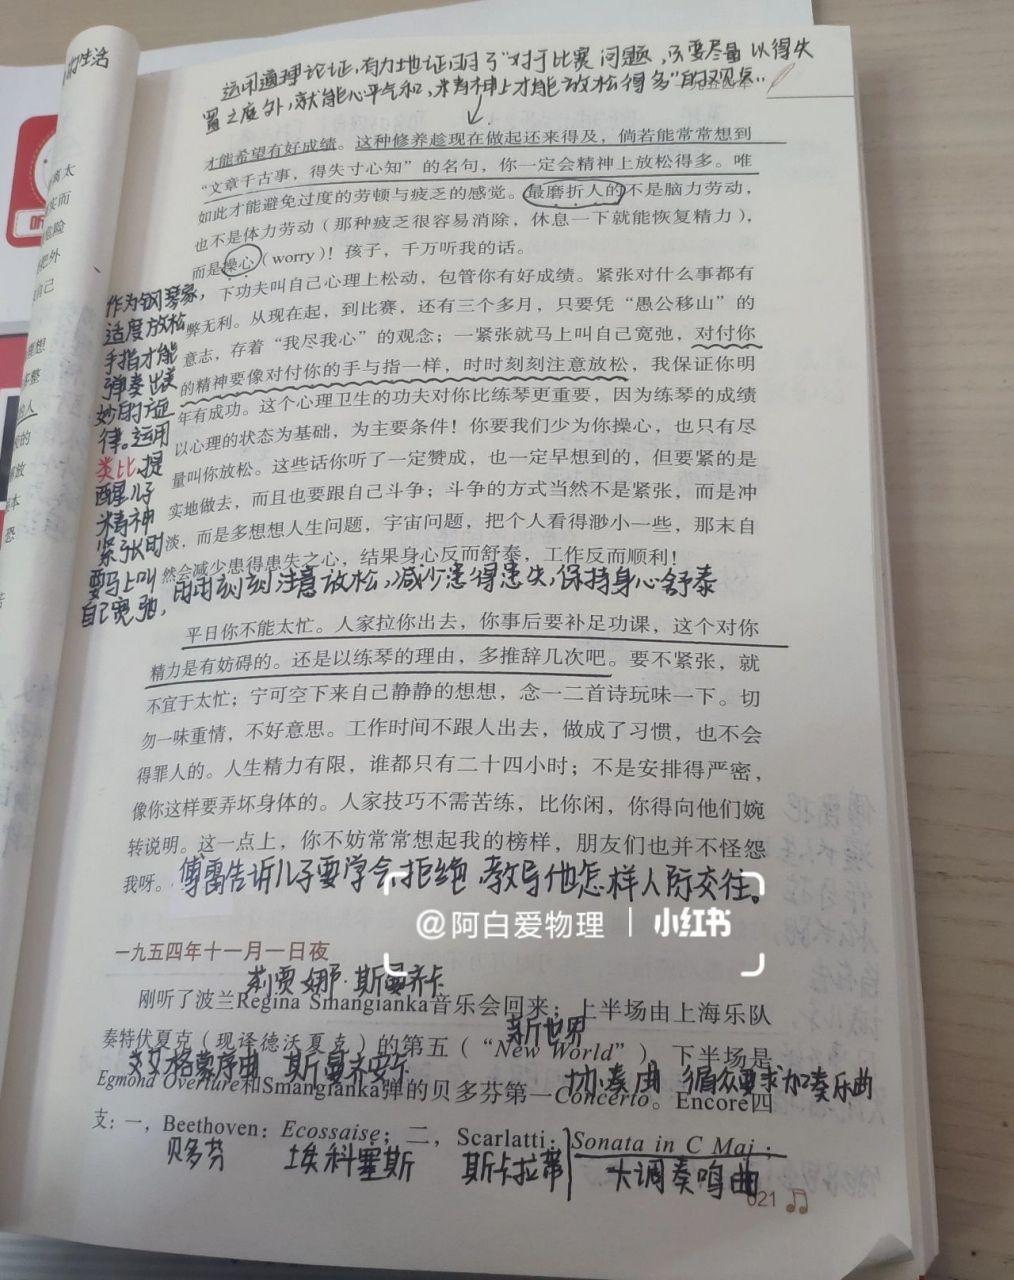 的生活
运用道理论证,有力地证明了“对于比赛问题,只要尽量以得失
置之度外,就能心平气和,精神上才能放松得多”的观点.
才能希望有好成绩。这种修养趁现在做起还来得及，倘若能常常想到
“文章千古事，得失寸心知”的名句，你一定会精神上放松得多。唯
如此才能避免过度的劳顿与疲乏的感觉。最磨折人的不是脑力劳动，
也不是体力劳动（那种疲乏很容易消除，休息一下就能恢复精力），
而是操心（worry）！孩子，千万听我的话。
下功夫叫自己心理上松动，包管你有好成绩。紧张对什么事都有
弊无利。从现在起，到比赛，还有三个多月，只要凭“愚公移山”的
意志，存着“我尽我心”的观念；一紧张就马上叫自己宽弛，对付你
的精神要像对付你的手与指一样，时时刻刻注意放松，我保证你明
年有成功。这个心理卫生的功夫对你比练琴更重要，因为练琴的成绩
以心理的状态为基础，为主要条件！你要我们少为你操心，也只有尽
量叫你放松。这些话你听了一定赞成，也一定早想到的，但要紧的是
实地做去，而且也要跟自己斗争；斗争的方式当然不是紧张，而是冲
淡，而是多想想人生问题，宇宙问题，把个人看得渺小一些，那末自
然会减少患得患失之心，结果身心反而舒泰，工作反而顺利！
作为钢琴家,
适度放松
手指才能
弹奏出美
妙的旋
律。运用
类比,提
醒儿子
精神
紧张时
要马上叫
自己宽弛,
时时刻刻注意放松,减少患得患失,保持身心舒泰
平日你不能太忙。人家拉你出去，你事后要补足功课，这个对你
精力是有妨碍的。还是以练琴的理由，多推辞几次吧。要不紧张，就
不宜于太忙；宁可空下来自己静静的想想，念一二首诗玩味一下。切
勿一味重情，不好意思。工作时间不跟人出去，做成了习惯，也不会
得罪人的。人生精力有限，谁都只有二十四小时；不是安排得严密，
像你这样要弄坏身体的。人家技巧不需苦练，比你闲，你得向他们婉
转说明。这一点上，你不妨常常想起我的榜样，朋友们也并不怪怨
我呀。
傅雷告诉儿子要学会拒绝,教导他怎样人际交往。
@阿白爱物理 | 小红书
一九五四年十一月一日夜
莉贾娜·斯曼齐卡
刚听了波兰Regina Smangianka音乐会回来；上半场由上海乐队
新世界
奏特伏夏克（现译德沃夏克）的第五（“New World”），下半场是
艾格蒙序曲 斯曼齐安卡
协奏曲 循众要求加奏乐曲
Egmond Overture和Smangianka弹的贝多芬第一Concerto。Encore四
支：一，Beethoven：Ecossaise；二，Scarlatti：Sonata in C Maj；
贝多芬 埃科塞斯 斯卡拉蒂 大调奏鸣曲
021